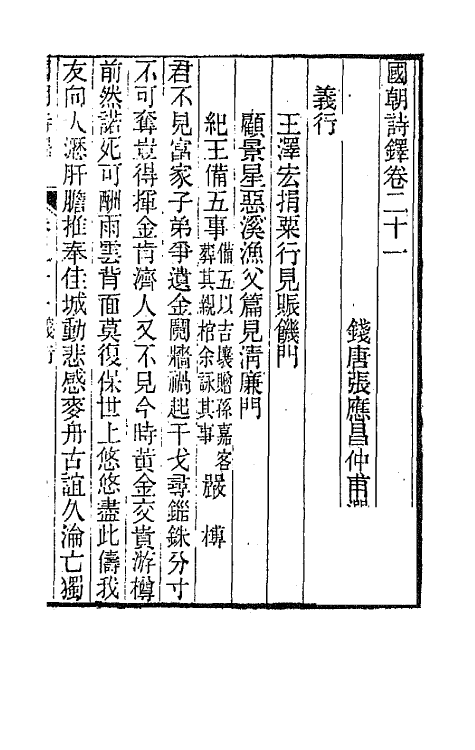 國朝詩鐸卷二十一
錢唐張應昌仲甫選
義行
王澤宏捐粟行見賑饑門
顧景星惡溪漁父篇見清廉門
紀王備五事 備五以吉壤贈孫嘉客葬其親棺余詠其事 嚴榑
君不見富家子弟爭遺金鬩牆禍起干戈尋錙銖分寸
不可奪豈得揮金肯濟人又不見今時黃金交貴游樽
前然諾死可酬雨雲背面莫復保世上悠悠盡此儔我
友向人瀝肝膽推奉佳城動悲感麥舟古誼久淪亡獨
義行